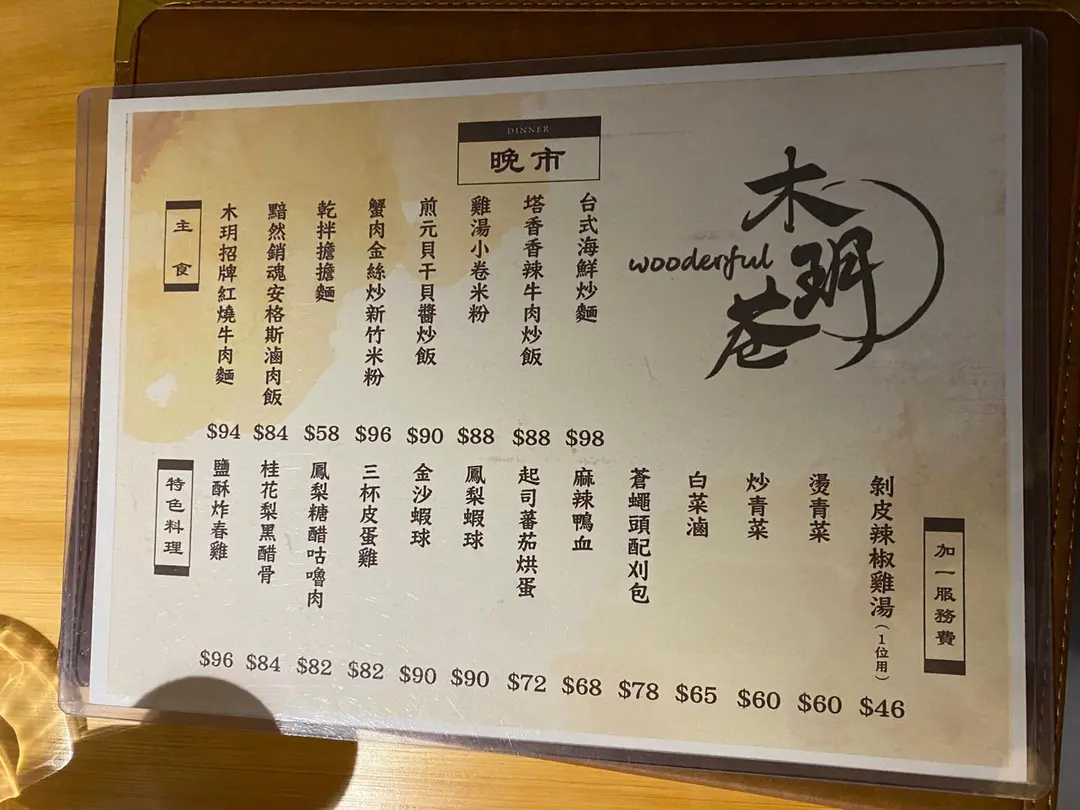 DINNER
晚市
木玥巷
wooderful
主食
木玥招牌紅燒牛肉麵 $94
黯然銷魂安格斯滷肉飯 $84
乾拌擔擔麵 $58
蟹肉金絲炒新竹米粉 $96
煎元貝干貝醬炒飯 $90
雞湯小卷米粉 $88
塔香香辣牛肉炒飯 $88
台式海鮮炒麵 $98
特色料理
鹽酥炸春雞 $96
桂花梨黑醋骨 $84
鳳梨糖醋咕嚕肉 $82
三杯皮蛋雞 $82
金沙蝦球 $90
鳳梨蝦球 $90
起司蕃茄烘蛋 $72
麻辣鴨血 $68
蒼蠅頭配刈包 $78
白菜滷 $65
炒青菜 $60
燙青菜 $60
剝皮辣椒雞湯（1位用） $46
加一服務費